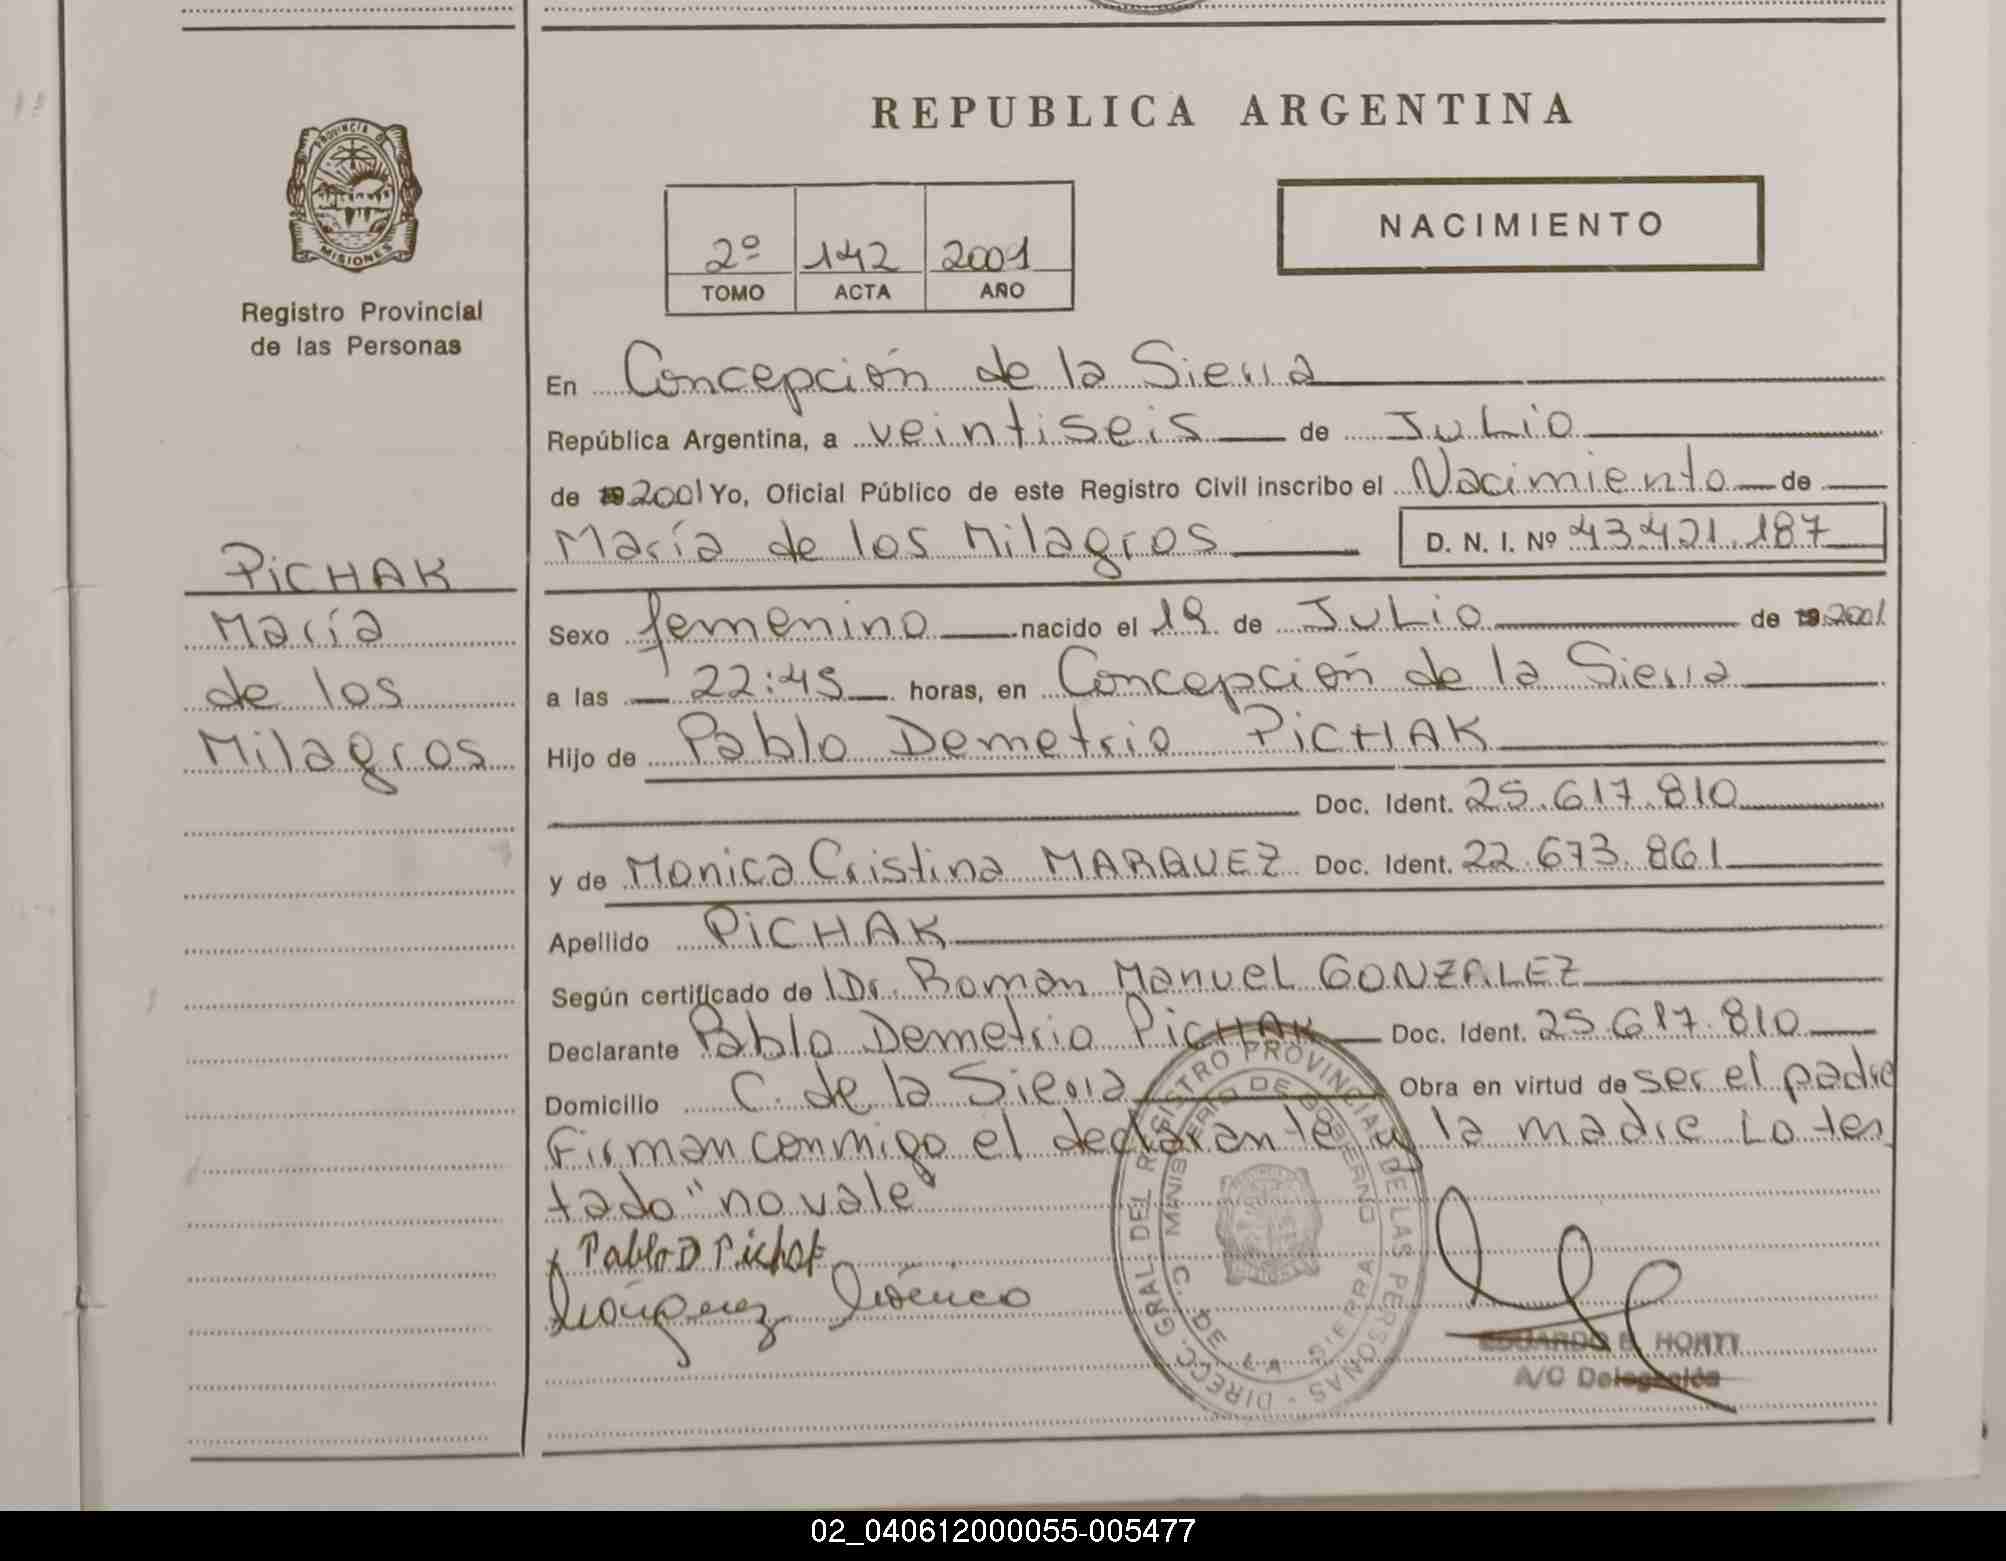 REPUBLICA ARGENTINA
PROVINCIA DE
MISIONES
Registro Provincial
de las Personas
NACIMIENTO
2º 142 2001
TOMO ACTA AÑO
En Concepción de la Sierra
República Argentina, a veintiseis de Julio
de 19 2001 Yo, Oficial Público de este Registro Civil inscribo el Nacimiento de
María de los Milagros D. N. I. Nº 43.421.187
PiCHAK
María
de los
Milagros
Sexo femenino nacido el 19 de Julio de 19 2001
a las 22:45 horas, en Concepción de la Sierra
Hijo de Pablo Demetrio PiCHAK
Doc. Ident. 25.617.810
y de Monica Cristina MARQUEZ Doc. Ident. 22.673.861
Apellido PiCHAK
Según certificado de Dr. Roman Manuel GONZALEZ
Declarante Pablo Demetrio PiCHAK Doc. Ident. 25.617.810
Domicilio C. de la Sierra Obra en virtud de ser el padre
Firman conmigo el declarante y la madre Lo tes
tado "no vale"
Pablo D Pichak
Márquez Mónica
DIRECC. GRAL DEL REGISTRO PROVINCIAL DE LAS PERSONAS
MINISTERIO DE GOBIERNO
C. DE LA SIERRA
EDUARDO
A/C Delegación
02_040612000055-005477